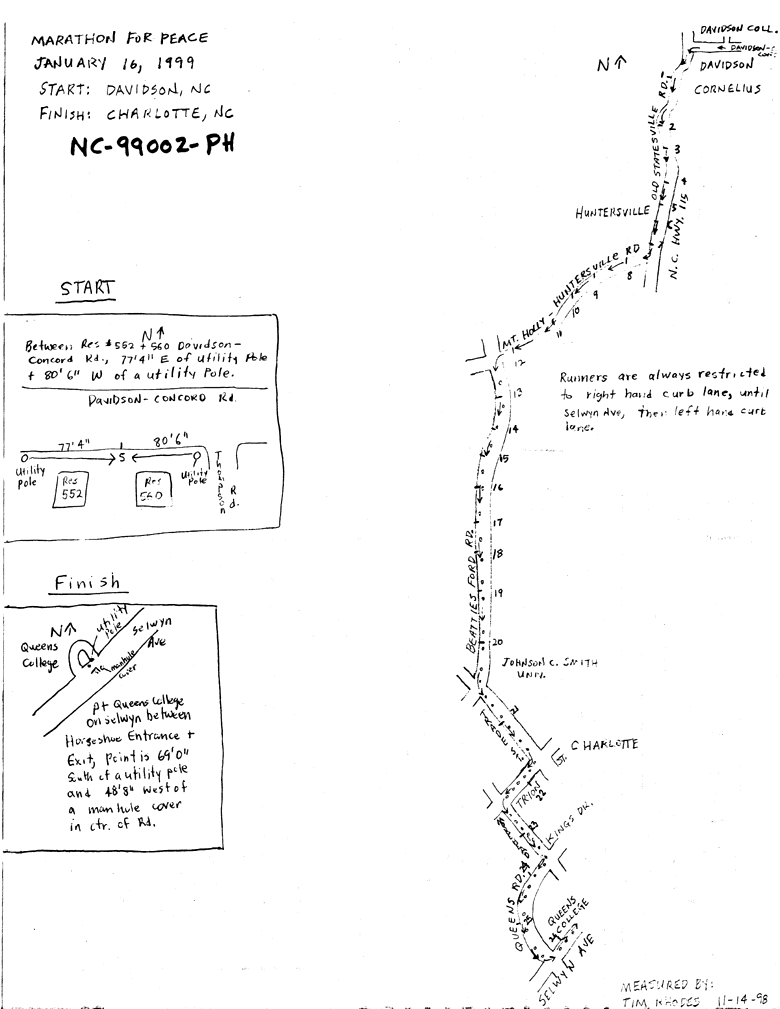 MARATHON FOR PEACE
JANUARY 16, 1999
START: DAVIDSON, NC
FINISH: CHARLOTTE, NC
NC-99002-PH
START
N↑
Between Res #552 + 560 Davidson-
Concord Rd., 77'4" E of utility Pole
+ 80'6" W of a utility Pole.
DAVIDSON-CONCORD Rd.
77'4"
80'6"
S
Utility
pole
Res
552
Res
560
Utility
Pole
Thompson
Rd.
Finish
N↑
Queens
College
utility
Pole
Selwyn
Ave
manhole
cover
pt Queens College
On Selwyn between
Horseshoe Entrance +
Exit, Point is 69'0"
South of a utility pole
and 48'8" West of
a manhole cover
in ctr. of Rd.
N↑
DAVIDSON COLL.
DAVIDSON-
CON.
DAVIDSON
CORNELIUS
1
2
3
4
5
6
7
OLD STATESVILLE RD.
N.C. HWY. 115
HUNTERSVILLE
MT. HOLLY-HUNTERSVILLE RD
8
9
10
11
12
Runners are always restricted
to right hand curb lane, until
Selwyn Ave, then left hand curb
lane.
13
14
15
16
17
18
19
20
BEATTIES FORD RD.
JOHNSON C. SMITH
UNIV.
21
TRADE ST.
CHARLOTTE
TRYON
ST.
22
23
KINGS DR.
24
QUEENS RD.
25
QUEENS
COLLEGE
26
SELWYN AVE
MEASURED BY:
TIM RHODES 11-14-98